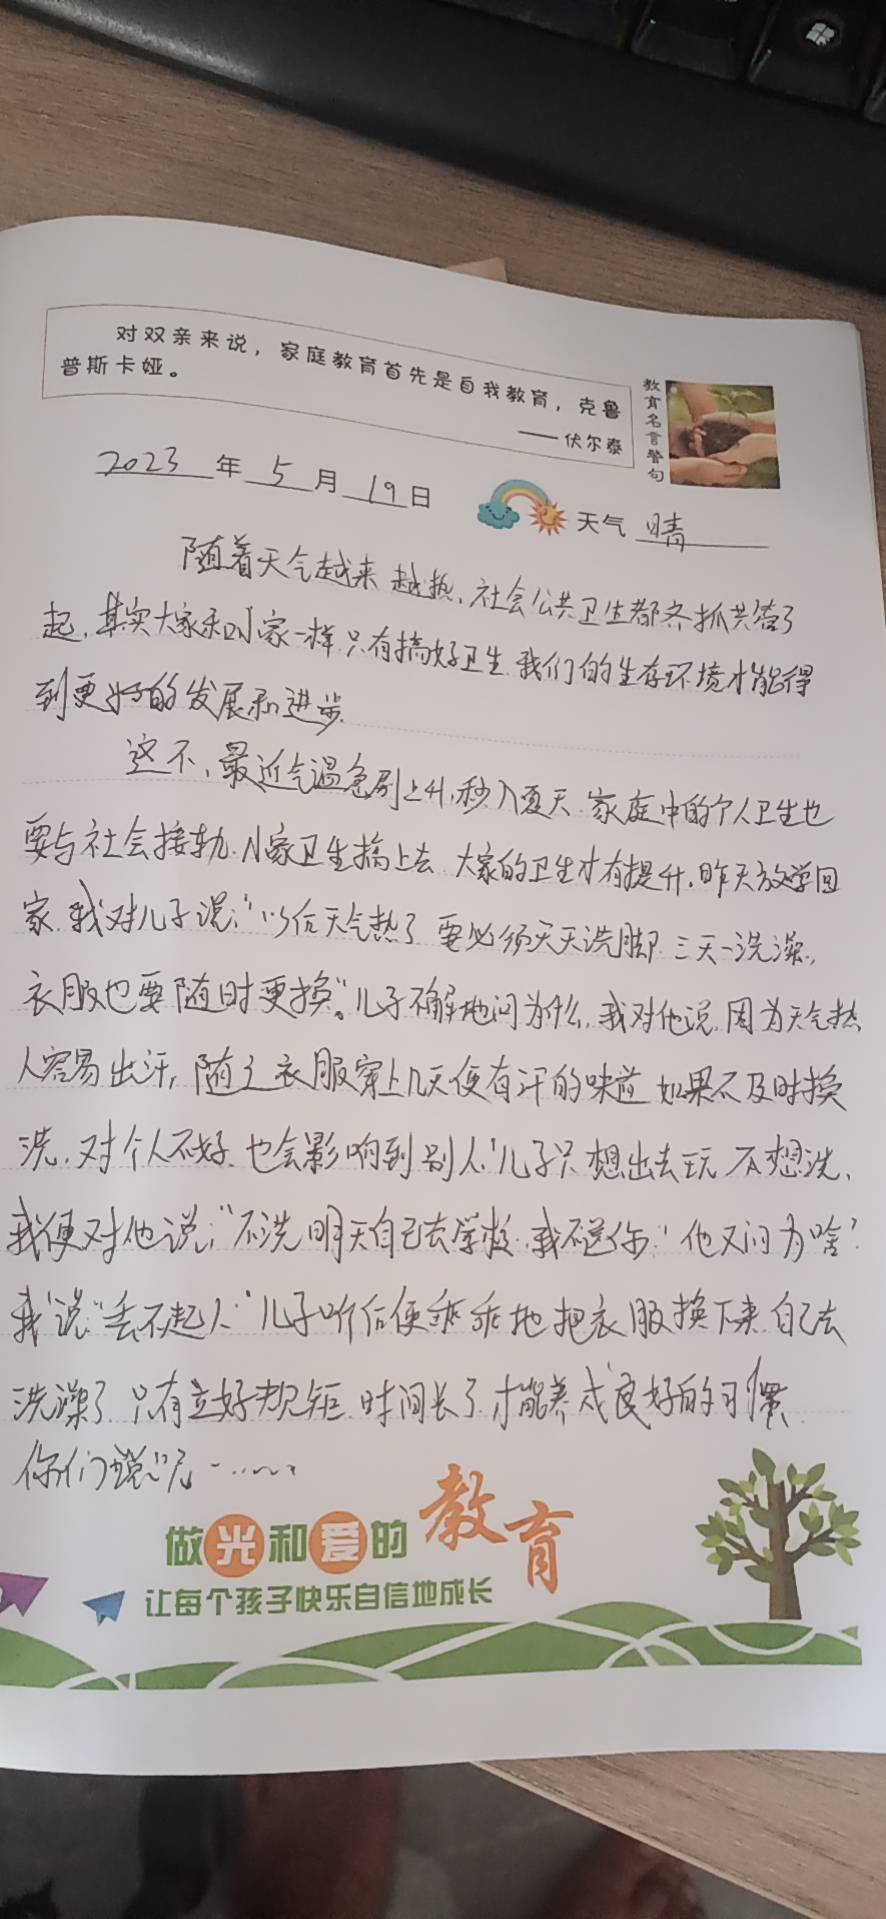 对双亲来说，家庭教育首先是自我教育，克鲁
普斯卡娅。
——伏尔泰
教育名言警句
2023年5月19日 天气 晴
随着天气越来越热，社会公共卫生都齐抓共管了
起，其实大家和小家一样，只有搞好卫生，我们的生存环境才能得
到更好的发展和进步。
这不，最近气温急剧上升，秒入夏天，家庭中的个人卫生也
要与社会接轨，小家卫生搞上去，大家的卫生才有提升，昨天放学回
家，我对儿子说：“以后天气热了，要必须天天洗脚，三天一洗澡，
衣服也要随时更换”。儿子不解地问为什么，我对他说，因为天气热
人容易出汗，随了衣服穿上几天便有汗的味道，如果不及时换
洗，对个人不好，也会影响到别人，”儿子只想出去玩，不想洗，
我便对他说：“不洗明天自己去学校，我不送你！”他又问为啥？
我说：“丢不起人”儿子听后便乖乖地把衣服换下来，自己去
洗澡了，只有立好规矩，时间长了，才能养成良好的习惯，
你们说呢……
做光和爱的教育
让每个孩子快乐自信地成长